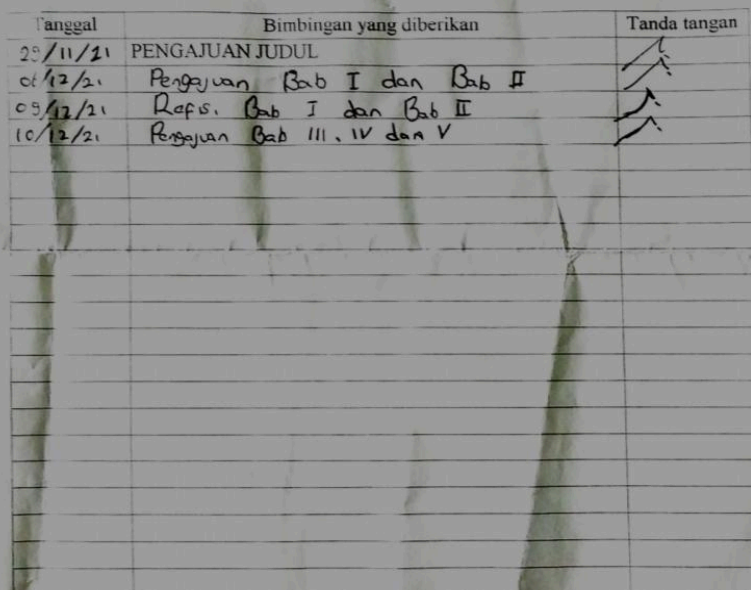 Tanggal Bimbingan yang diberikan Tanda tangan
29/11/21 PENGAJUAN JUDUL
06/12/21 Pengajuan Bab I dan Bab II
09/12/21 Refisi Bab I dan Bab II
10/12/21 Pengajuan Bab III, IV dan V